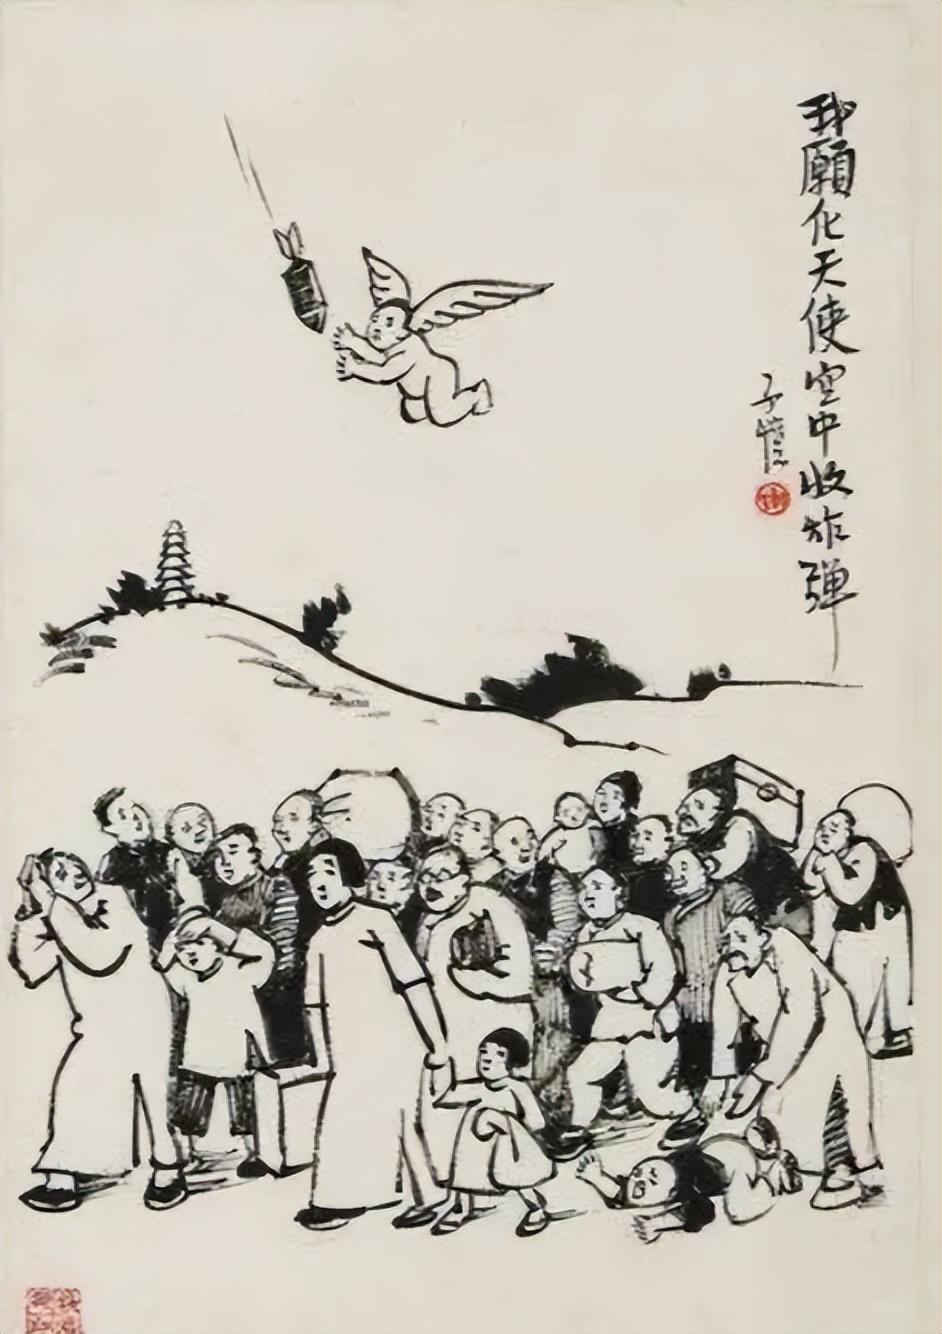 我願化天使空中收炸弹
子愷